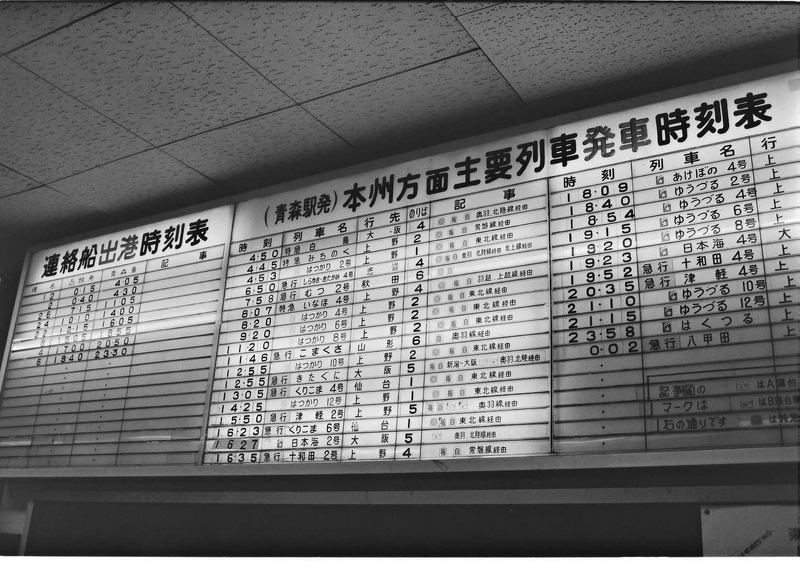 連絡船出港時刻表
記事
2 015 405
22 040 430
26 715 1105
24 1010 1400
4 1215 1605
8 1700 2050
6 1940 2330
(青森駅発)本州方面主要列車発車時刻表
時刻 列車名 行先 のりば 記事
4:50 特急 白鳥 大阪 4 指自 奥羽.北陸線経由
4:45 特急 みちのく 上野 2 常磐線経由
4:53 はつかり 2号 上野 1 東北線経由
6:50 急行 しらゆき・きたかみ 4号 4 北上線経由
7:58 急行 むつ 2号 秋田 6
8:07 特急 いなほ 4号 上野 4 羽越.上越線経由
8:20 はつかり 4号 上野 2 指自 東北線経由
9:20 はつかり 6号 上野 2 指自 東北線経由
11:20 はつかり 8号 上野 2 指自 東北線経由
11:46 急行 こまくさ 山形 6 自 奥羽線経由
12:55 はつかり 10号 上野 2 指自 東北線経由
12:55 急行 きたぐに 大阪 5 新潟-大阪 奥羽.北陸線経由
13:05 急行 くりこま 4号 仙台 1 指自 東北線経由
14:25 はつかり 12号 上野 1 指自 東北線経由
15:50 急行 津軽 2号 上野 5 奥羽線経由
16:23 急行 くりこま 6号 仙台 1 指自 東北線経由
16:27 日本海 2号 大阪 5 奥羽.北陸線経由
16:35 急行 十和田 2号 上野 4 指自 常磐線経由
時刻 列車名 行
18:09 あけぼの 4号 上
18:40 ゆうづる 2号 上
18:54 ゆうづる 4号 上
19:15 ゆうづる 6号 上
19:20 ゆうづる 8号 上
19:23 日本海 4号 大
19:52 急行 十和田 4号 上
20:35 急行 津軽 4号 上
21:10 ゆうづる 10号 上
21:15 ゆうづる 12号 上
23:58 はくつる 上
0:02 急行 八甲田 上
記事欄の はA寝台
マークは はB寝台
右の通りです は特急